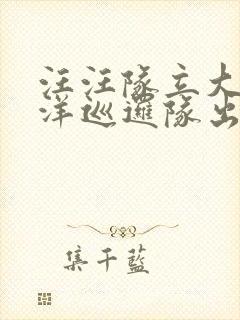 汪汪隊立大
洋巡邏隊出
集千藍